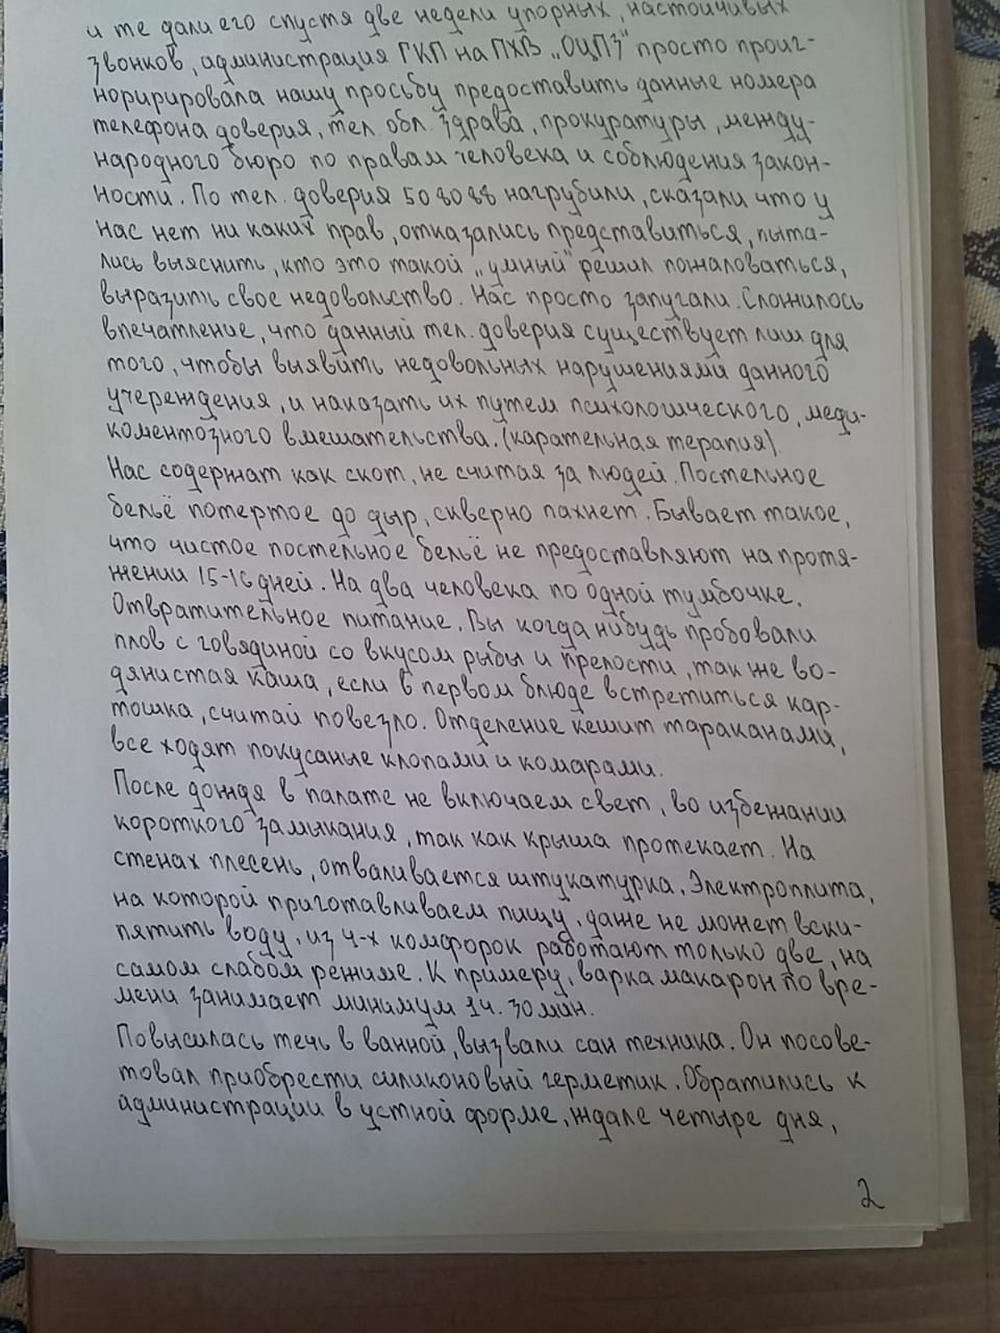 и те дали его спустя две недели упорных, настойчивых
звонков, администрация ГКП на ПХВ „ОЦПЗ" просто проиг-
норирировала нашу просьбу предоставить данные номера
телефона доверия, тел. обл. здрава, прокуратуры, между-
народного бюро по правам человека и соблюдения закон-
ности. По тел. доверия 508088 нагрубили, сказали что у
нас нет ни каких прав, отказались представиться, пыта-
лись выяснить, кто это такой „умный" решил пожаловаться,
выразить свое недовольство. Нас просто запугали. Сложилось
впечатление, что данный тел. доверия существует лиш для
того, чтобы выявить недовольных нарушениями данного
учереждения, и наказать их путем психологического, меди-
коментозного вмешательства. (карательная терапия).
Нас содержат как скот, не считая за людей. Постельное
бельё потертое до дыр, скверно пахнет. Бывает такое,
что чистое постельное бельё не предоставляют на протя-
жении 15-16 дней. На два человека по одной тумбочке.
Отвратительное питание. Вы когда нибудь пробовали
плов с говядиной со вкусом рыбы и прелости, так же во-
дянистая каша, если в первом блюде встретиться кар-
тошка, считай повезло. Отделение кешит тараканами,
все ходят покусаные клопами и комарами.
После дождя в палате не включаем свет, во избежании
короткого замыкания, так как крыша протекает. На
стенах плесень, отваливается штукатурка. Электроплита,
на которой приготавливаем пищу, даже не может вски-
пятить воду, из 4-х комфорок работают только две, на
самом слабом режиме. К примеру, варка макарон по вре-
мени занимает минимум 1ч. 30 мин.
Повысилась течь в ванной, вызвали сан техника. Он посове-
товал приобрести силиконовый герметик. Обратились к
администрации в устной форме, ждале четыре дня,
2